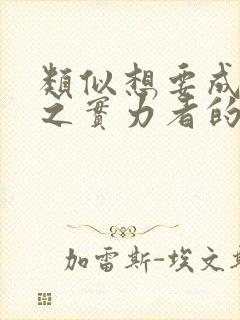 類似想要成
之實力者的
加雷斯-埃文斯